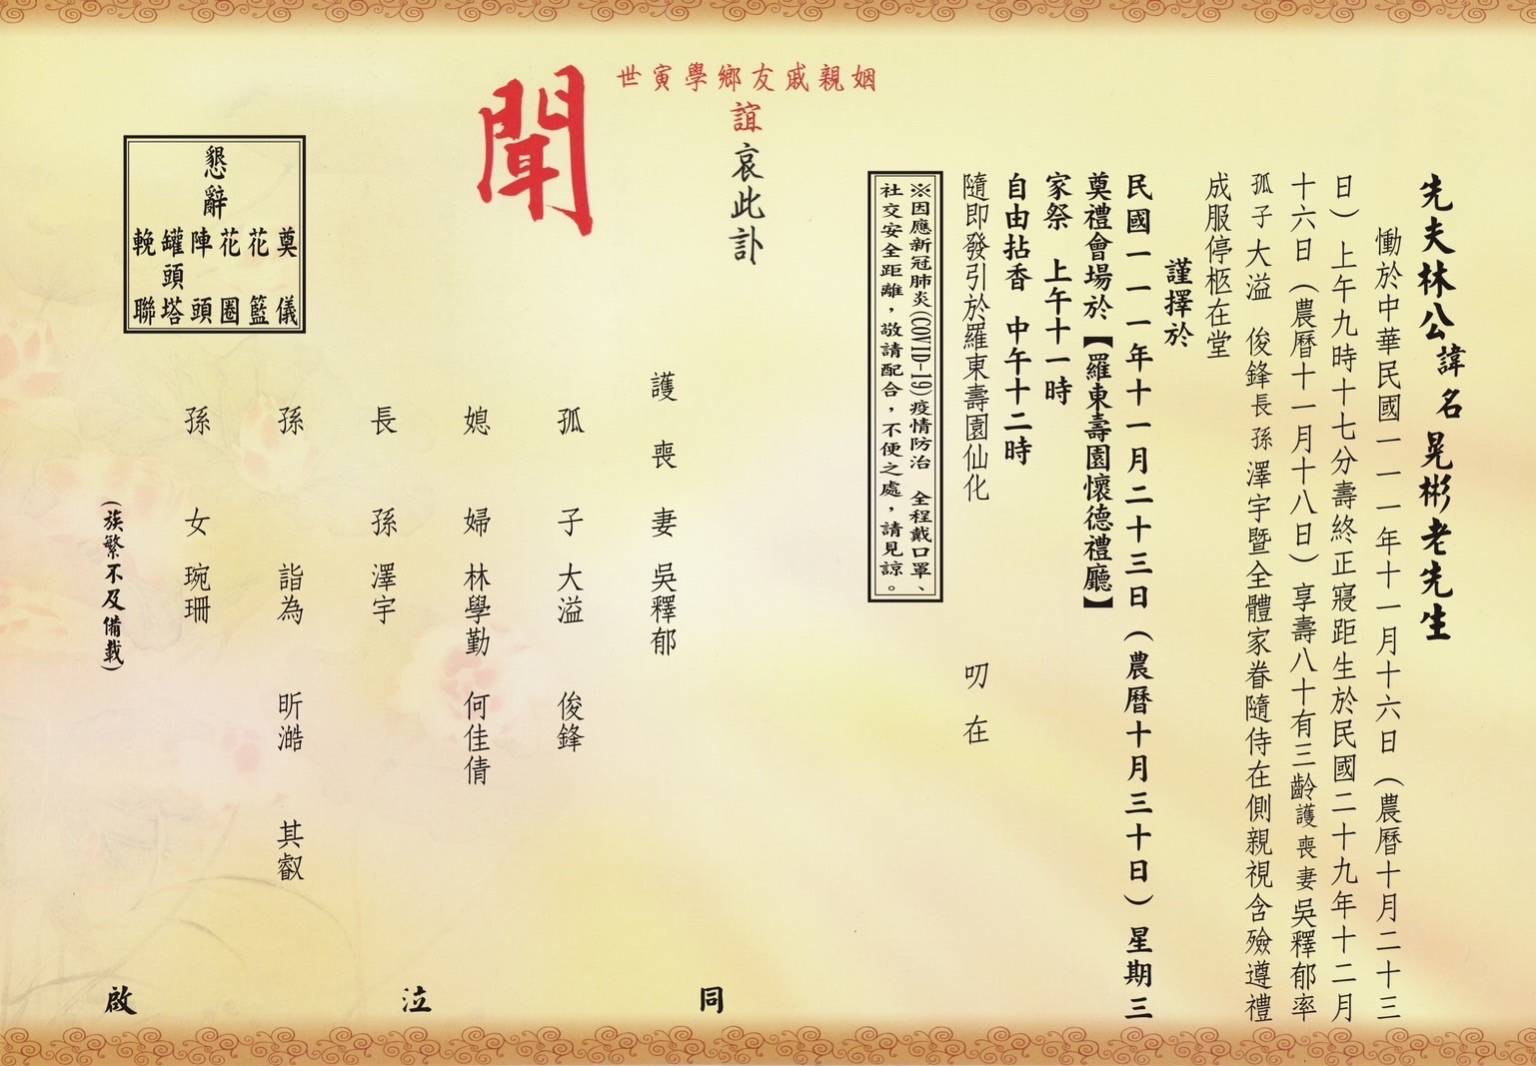 先夫林公諱名晃彬老先生
慟於中華民國一一一年十一月十六日（農曆十月二十三
日）上午九時十七分壽終正寢距生於民國二十九年十二月
十六日（農曆十一月十八日）享壽八十有三齡護喪妻吳釋郁率
孤子大溢　俊鋒長孫澤宇暨全體家眷隨侍在側親視含殮遵禮
成服停柩在堂
謹擇於
民國一一一年十一月二十三日（農曆十月三十日）星期三
奠禮會場於【羅東壽園懷德禮廳】
家祭　上午十一時
自由拈香　中午十二時
隨即發引於羅東壽園仙化　叨在
※因應新冠肺炎(COVID-19)疫情防治　全程戴口罩、
社交安全距離，敬請配合，不便之處，請見諒。
姻親戚友鄉學寅世
誼哀此訃
聞
護喪妻　吳釋郁
孤子　大溢　俊鋒
媳婦　林學勤　何佳倩
長孫　澤宇
孫　詣為　昕澔　其叡
孫女　琬珊
（族繁不及備載）
同泣啟
懇辭
奠儀
花籃
花圈
陣頭
罐頭塔
輓聯